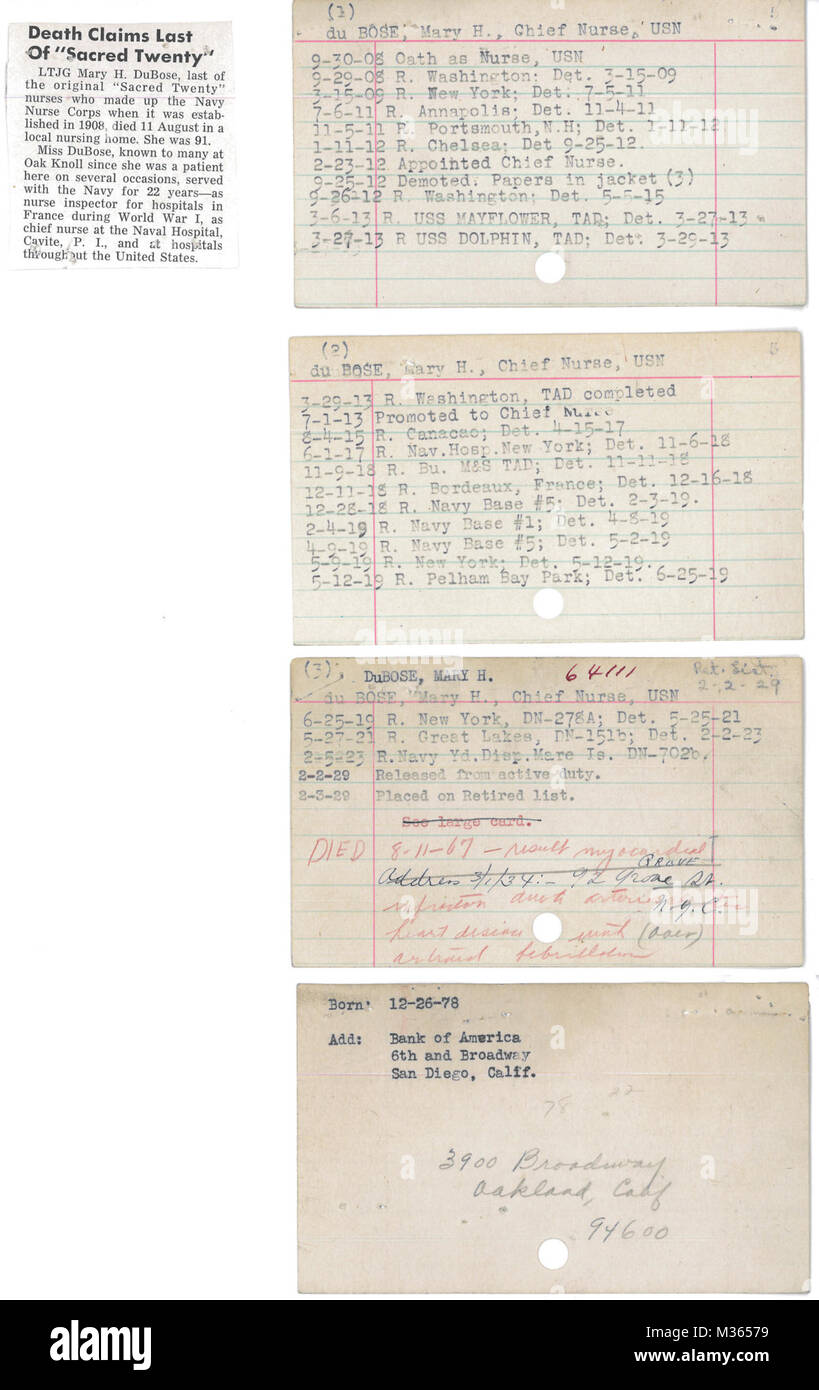 Death Claims Last
Of "Sacred Twenty"
LTJG Mary H. DuBose, last of
the original "Sacred Twenty"
nurses who made up the Navy
Nurse Corps when it was estab-
lished in 1908, died 11 August in a
local nursing home. She was 91.
Miss DuBose, known to many at
Oak Knoll since she was a patient
here on several occasions, served
with the Navy for 22 years—as
nurse inspector for hospitals in
France during World War I, as
chief nurse at the Naval Hospital,
Cavite, P. I., and at hospitals
throughout the United States.
(1)
du BOSE, Mary H., Chief Nurse, USN
9-30-08 Oath as Nurse, USN
9-29-08 R. Washington: Det. 3-15-09
3-15-09 R. New York; Det. 7-5-11
7-6-11 R. Annapolis; Det. 11-4-11
11-5-11 R. Portsmouth, N.H; Det. 1-11-12
1-11-12 R. Chelsea; Det 9-25-12.
2-23-12 Appointed Chief Nurse.
9-25-12 Demoted. Papers in jacket (3)
9-26-12 R. Washington; Det. 5-5-15
3-6-13 R. USS MAYFLOWER, TAD; Det. 3-27-13
3-27-13 R USS DOLPHIN, TAD; Det. 3-29-13
(2)
5
du BOSE, Mary H., Chief Nurse, USN
3-29-13 R. Washington, TAD completed
7-1-13 Promoted to Chief Nurse
8-4-15 R. Canacao; Det. 4-15-17
6-1-17 R. Nav.Hosp.New York; Det. 11-6-18
11-9-18 R. Bu. M&S TAD; Det. 11-11-18
12-11-18 R. Bordeaux, France; Det. 12-16-18
12-28-18 R. Navy Base #5; Det. 2-3-19.
2-4-19 R. Navy Base #1; Det. 4-8-19
4-9-19 R. Navy Base #5; Det. 5-2-19
5-9-19 R. New York; Det. 5-12-19.
5-12-19 R. Pelham Bay Park; Det. 6-25-19
(3)
DuBOSE, MARY H.
64111
Ret. List
2-2-29
du BOSE, Mary H., Chief Nurse, USN
6-25-19 R. New York, DN-278A; Det. 5-25-21
5-27-21 R. Great Lakes, DN-151b; Det. 2-2-23
2-5-23 R.Navy Yd.Disp.Mare Is. DN-702b.
2-2-29 Released from active duty.
2-3-29 Placed on Retired list.
See large card.
DIED 8-11-67 - result myocardial
GROVE
Address 3/1/34:- 92 Grove St.
N.Y.C.
heart disease with (over)
Born: 12-26-78
Add: Bank of America
6th and Broadway
San Diego, Calff.
78 22
3900 Broadway
Oakland, Calif
94600
alamy
a
alamy
Image ID: M36579
www.alamy.com